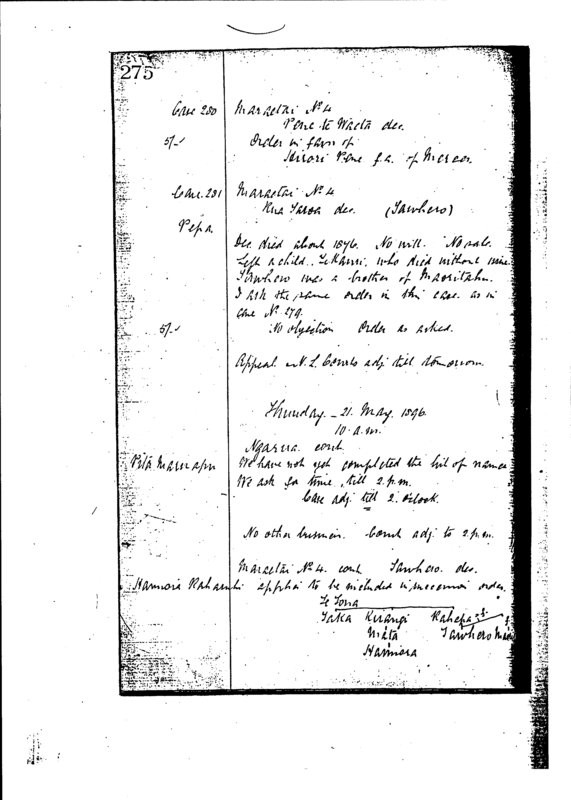 275
Case 280 Maraetai No 4
Pene te Waeta dec.
5/- Order in favor of
Hirori Pene f.a. of Mercer.
Case 281 Maraetai No 4
Rua Taroa dec. (Tawhero)
Pepa.
Dec. died about 1876. No will. No sale.
Left a child, Te Karri, who died without issue
Tawhero was a brother of
I ask the same order in this case as in
case No. 279.
5/- No objection Order as asked.
Appeal N. L. Courts adj till tomorrow.
Thursday - 21. May. 1896
10. a.m.
Ngarua. cont.
We have not yet completed the list of names
We ask for time till 2. p.m.
Case adj till 2. o'clock.
No other business. Court adj to 2. p.m.
Maraetai No 4. cont Tawhero. dec.
Hamiora applies to be included in order.
Te Tona
Taka Kirangi Rahapa
Mata Tawhero
Hamiora